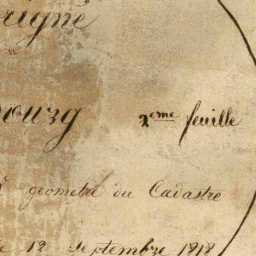 rigné
bourg 2eme feuille
géometre du Cadastre
le 12 Septembre 1818